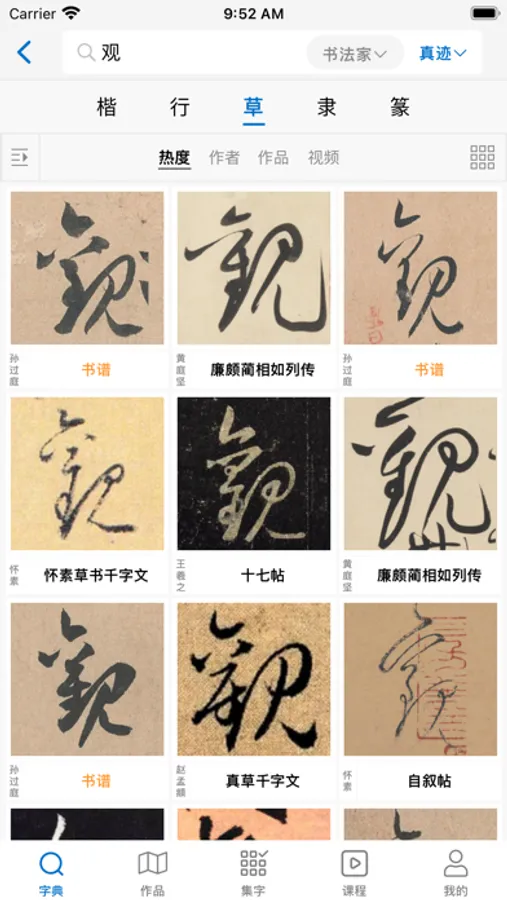 Carrier 9:52 AM
观 书法家 真迹
楷 行 草 隶 篆
热度 作者 作品 视频
觀 觀 觀
孙过庭 书谱 黄庭坚 廉颇蔺相如列传 孙过庭 书谱
觀 觀 觀
怀素 怀素草书千字文 王羲之 十七帖 黄庭坚 廉颇蔺相如列传
觀 觀 觀
孙过庭 书谱 赵孟頫 真草千字文 怀素 自叙帖
字典 作品 集字 课程 我的